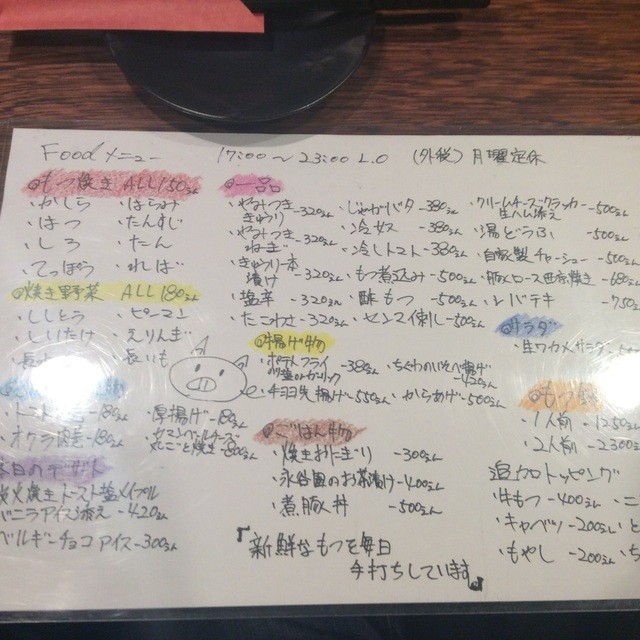 Foodメニュー 17:00〜23:00 L.O (外税) 月曜定休
◎もつ焼き ALL150えん
・かしら ・はらみ
・はつ ・たんすじ
・しろ ・たん
・てっぽう ・ればー
◎焼き野菜 ALL180えん
・ししとう ・ピーマン
・しいたけ ・えりんぎ
・長いも
・厚揚げ-180えん
・オクラ -180えん
本日のデザート
炭火焼きトースト メイプル
バニラアイス添え -420えん
ベルギーチョコアイス-300えん
◎一品
・やみつききゅうり-320えん
・やみつきねぎ-320えん
・きゅうり一本漬け-320えん
・塩辛 -320えん
・たこわさ-320えん
・じゃがバタ-380えん
・冷ナス -380えん
・冷しトマト-380えん
・もつ煮込み-500えん
・酢もつ -500えん
・センマイ刺し-500えん
・クリームチーズクラッカー生ハム添え -500えん
・湯どうふ -500えん
・自家製チャーシュー-500えん
・豚ロース西京焼き-680えん
・レバテキ -750
◎揚げ物
・ポテトフライ -380えん
・ちくわのいそべ揚げ-420えん
・からあげ-500えん
◎ごはん物
・焼きおにぎり -300えん
・永谷園のお茶漬け-400えん
・煮豚丼 -500えん
サラダ
・生ワカメサラダ
◎もつ鍋
・1人前 -1250
・2人前 -2300
追加トッピング
・牛もつ-400えん
・キャベツ-200えん
・もやし -200えん
『新鮮なもつを毎日
手打ちしています』